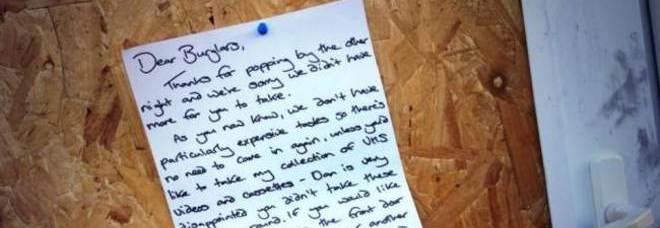 Dear Burglars,
Thanks for popping by the other
night and we're sorry we didn't have
more for you to take.
As you now know, we don't have
particularly expensive tastes so there's
no need to come in again, unless you'd
like to take my collection of VHS
videos and cassettes - Dan is very
disappointed you didn't take these
round. If you would like
the front door
of another